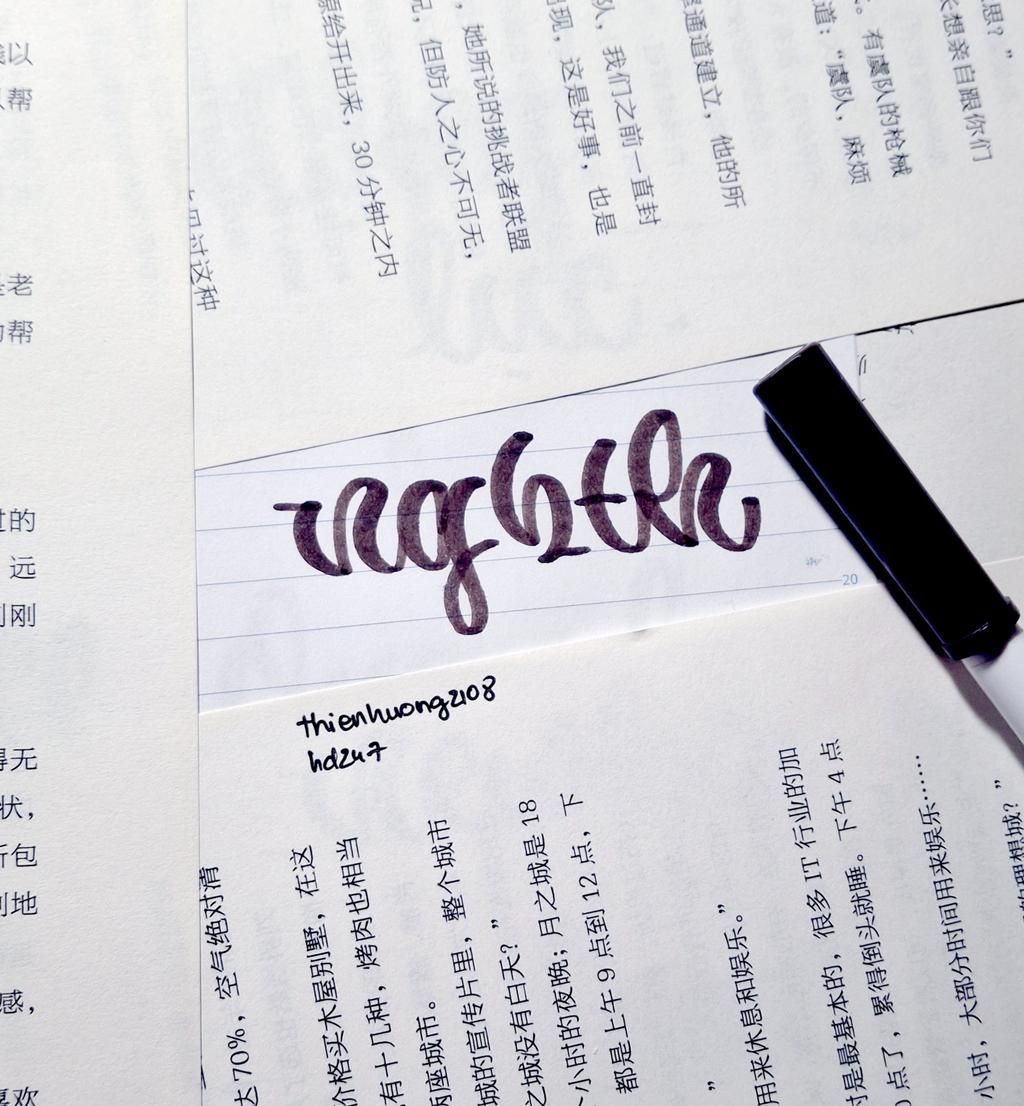 以
帮
老
帮
的
远
刚
无
状，
包
地
感，
欢
思？”
想亲自跟你们
。有虞队的枪械
道：“虞队，麻烦
通道建立，他的所
队，我们之前一直封
现，这是好事，也是
，她所说的挑战者联盟
，但防人之心不可无，
给开出来，30 分钟之内
过这种
20
thienhuong2108
hd247
达 70%，空气绝对清
价格买木屋别墅，在这
有十几种，烤肉也相当
两座城市。
城的宣传片里，整个城市
之城没有白天？”
小时的夜晚；月之城是 18
都是上午 9 点到 12 点，下
”
用来休息和娱乐。”
是最基本的，很多 IT 行业的加
点了，累得倒头就睡。下午 4 点
小时，大部分时间用来娱乐……
理想城？”